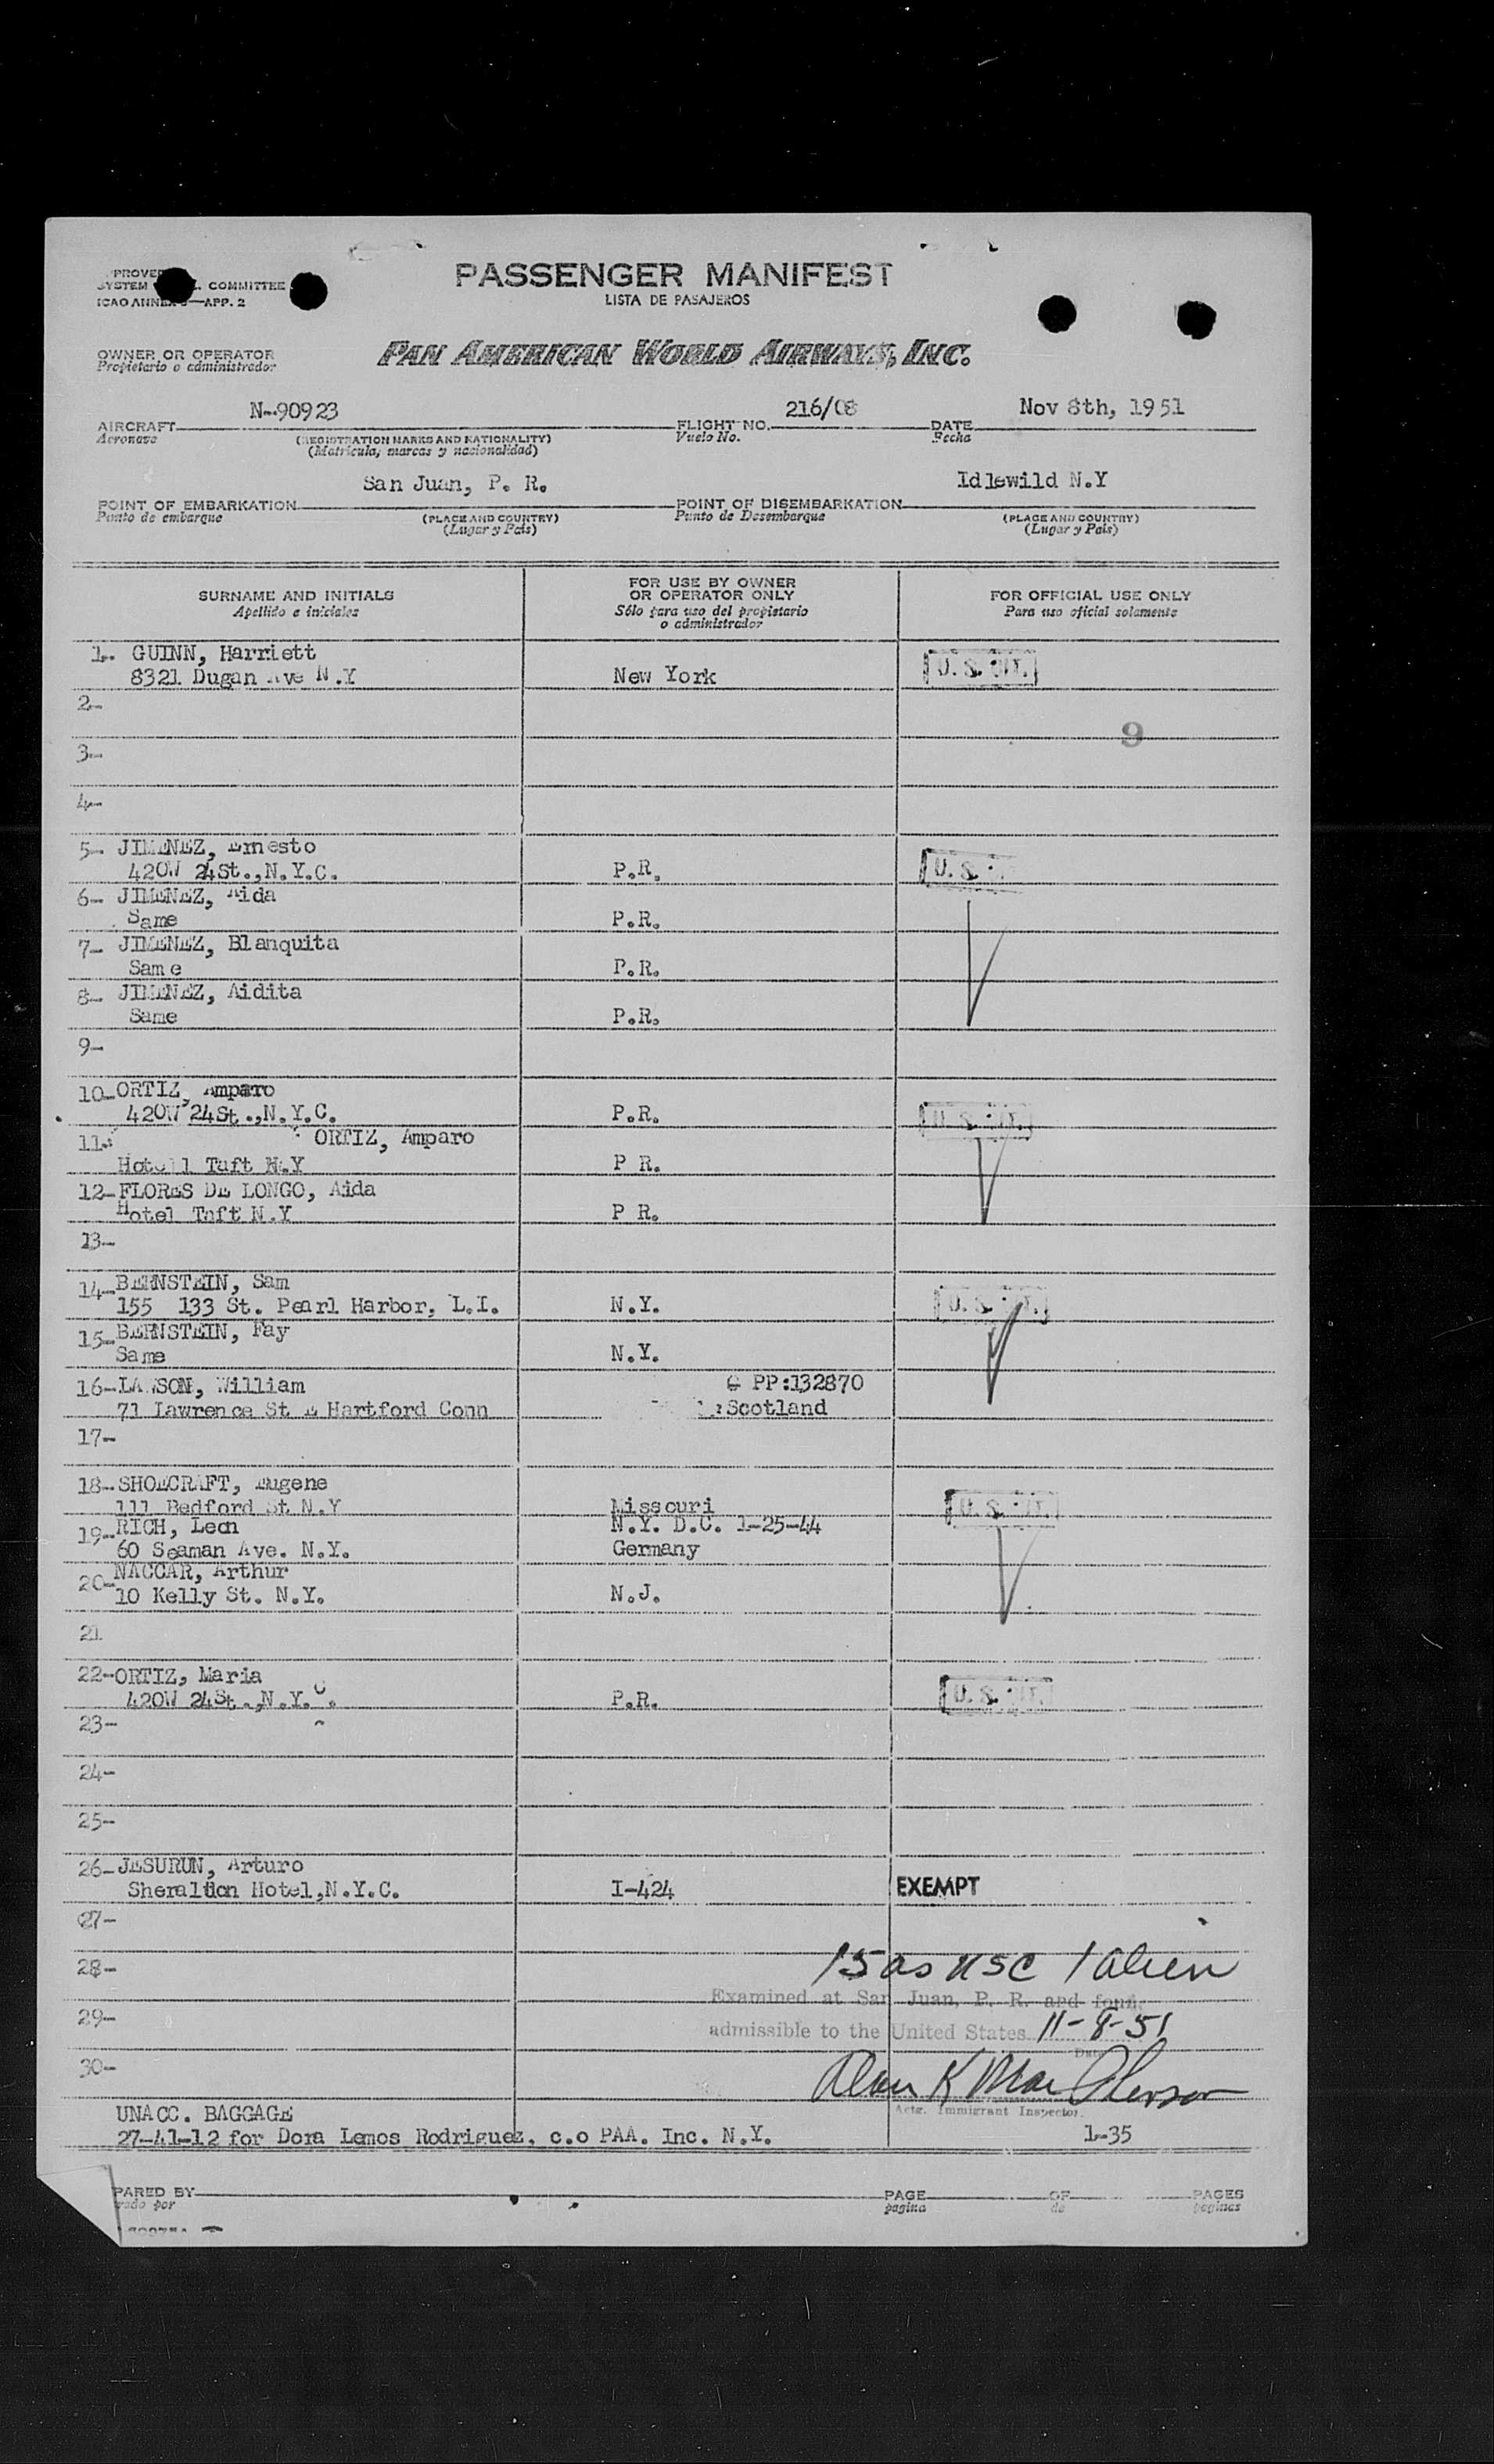 PASSENGER MANIFEST
LISTA DE PASAJEROS
SYSTEM COMMITTEE
ICAO ANNEX 9—APP. 2
OWNER OR OPERATOR
Propietario o administrador
PAN AMERICAN WORLD AIRWAYS, INC.
N-90923 216/08 Nov 8th, 1951
AIRCRAFT FLIGHT NO. DATE
Aeronave (REGISTRATION MARKS AND NATIONALITY) Vuelo No. Fecha
(Matricula, marcas y nacionalidad)
San Juan, P. R. Idlewild N.Y
POINT OF EMBARKATION POINT OF DISEMBARKATION
Punto de embarque (PLACE AND COUNTRY) Punto de Desembarque (PLACE AND COUNTRY)
(Lugar y País) (Lugar y País)
SURNAME AND INITIALS FOR USE BY OWNER OR OPERATOR ONLY FOR OFFICIAL USE ONLY
Apellido e iniciales Sólo para uso del propietario o administrador Para uso oficial solamente
1. GUINN, Harriett
8321 Dugan Ave N.Y New York U.S. CIT.
2-
9
3-
4-
5- JIMENEZ, Ernesto
420W 24St.,N.Y.C. P.R. U.S.
6- JIMENEZ, Aida
Same P.R.
7- JIMENEZ, Blanquita
Same P.R.
8- JIMENEZ, Aidita
Same P.R.
9-
10-ORTIZ, Amparo
420W 24St.,N.Y.C. P.R. U.S. CIT.
11. ORTIZ, Amparo
Hotel Taft N.Y P R.
12-FLORES DE LONGO, Aida
Hotel Taft N.Y P R.
13-
14-BERNSTEIN, Sam
155 133 St. Pearl Harbor, L.I. N.Y. U.S. CIT.
15-BERNSTEIN, Fay
Same N.Y.
16-LAWSON, William PP:132870
71 Lawrence St E Hartford Conn :Scotland
17-
18-SHOECRAFT, Eugene
111 Bedford St N.Y Missouri U.S. CIT.
19-RICH, Leon N.Y. D.C. 1-25-44
60 Seaman Ave. N.Y. Germany
20-NACCAR, Arthur
10 Kelly St. N.Y. N.J.
21
22-ORTIZ, Maria
420W 24St.,N.Y.C. P.R. U.S. CIT.
23-
24-
25-
26-JESURUN, Arturo
Sheraltion Hotel,N.Y.C. I-424 EXEMPT
27-
15 as USC 1 alien
28-
Examined at San Juan, P. R. and found
29-
admissible to the United States 11-8-51
Date
30-
Alan K MacPherson
Actg. Immigrant Inspector
UNACC. BAGGAGE
27-41-12 for Dora Lemos Rodriguez, c.o PAA. Inc. N.Y. 1-35
PARED BY PAGE OF PAGES
rado por pagina de paginas